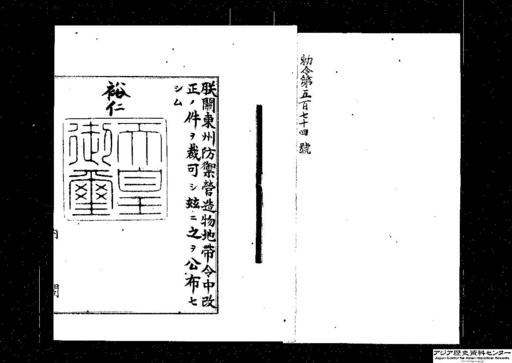 勅令第五百七十四號
朕關東州防禦營造物地帶令中改
正ノ件ヲ裁可シ玆ニ之ヲ公布セ
シム
裕仁
天皇
御璽
内閣
アジア歴史資料センター
Japan Center for Asian Historical Records